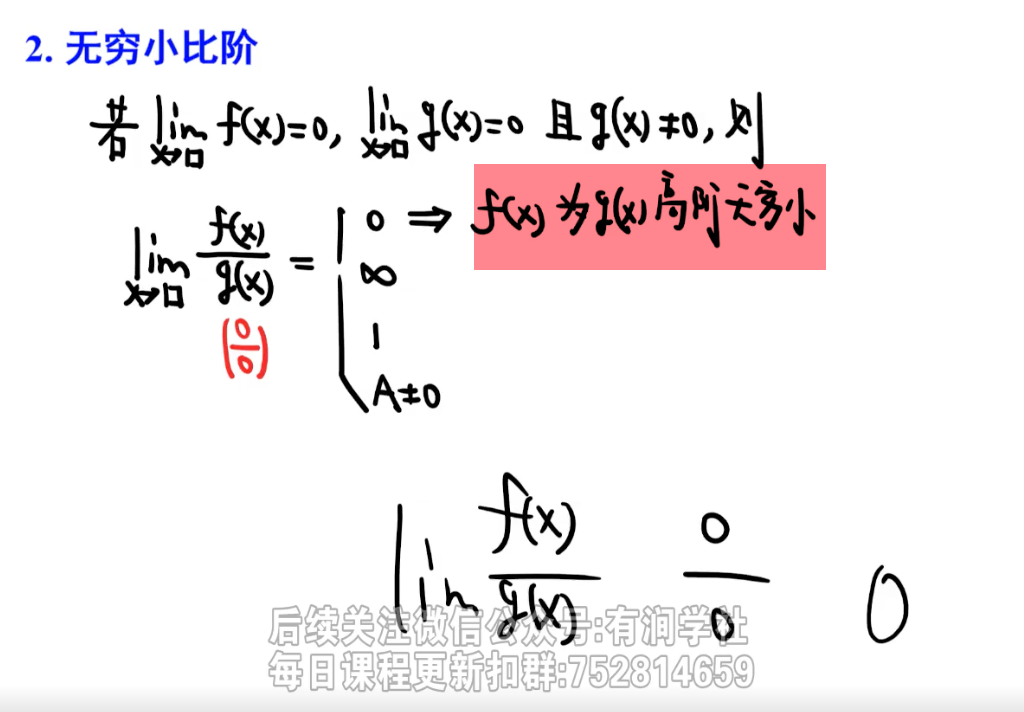 2. 无穷小比阶
若 lim x→□ f(x)=0, lim x→□ g(x)=0 且 g(x)≠0, 则
lim x→□ f(x)/g(x) = { 0 ⇒ f(x) 为 g(x) 高阶无穷小
∞
(0/0)
1
A≠0
lim f(x)/g(x) 0/0 0
后续关注微信公众号:有润学社
每日课程更新扣群:752814659